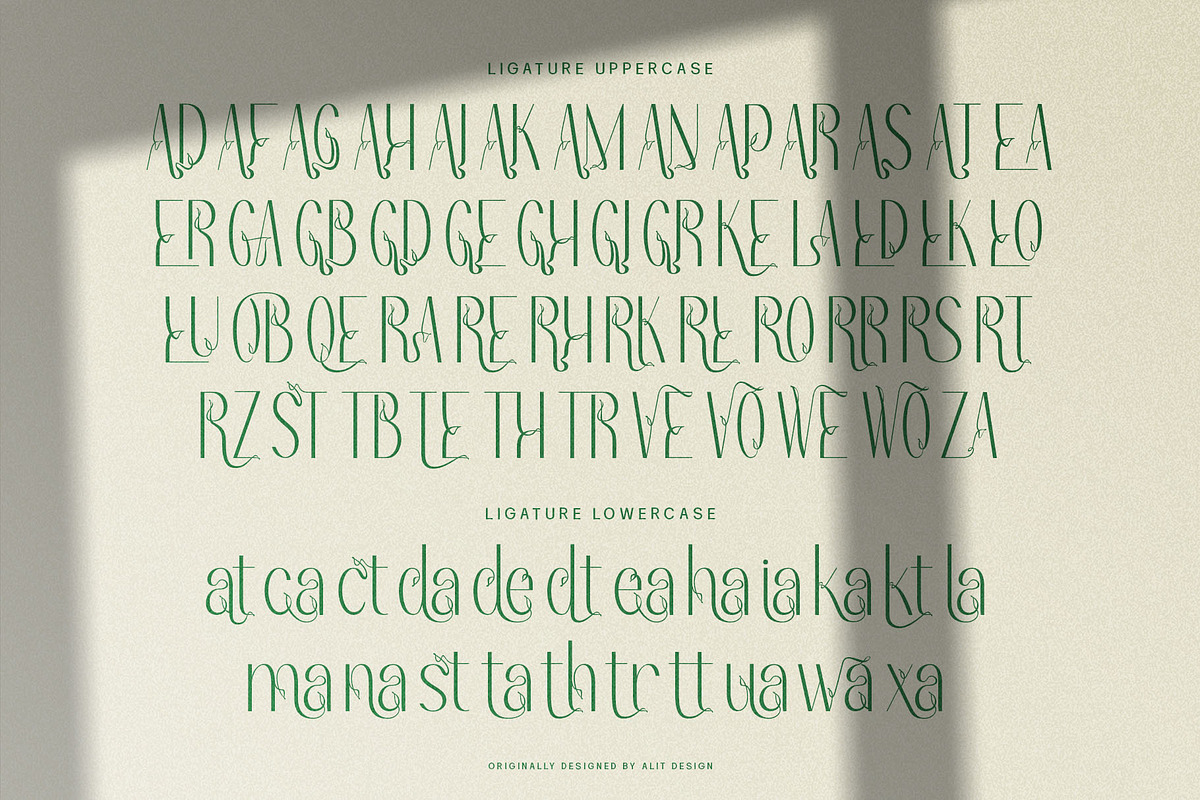 LIGATURE UPPERCASE
AD AF AG AH AI AK AM AN AP AR AS AT EA
ER GA GB GD GE GH GI GR KE LA LD LK LO
LU OB OE RA RE RH RK RL RO RR RS RT
RZ ST TB TE TH TR VE VO WE WO ZA
LIGATURE LOWERCASE
at ca ct da de dt ea ha ia ka kt la
ma na st ta th tr tt ua wa xa
ORIGINALLY DESIGNED BY ALIT DESIGN